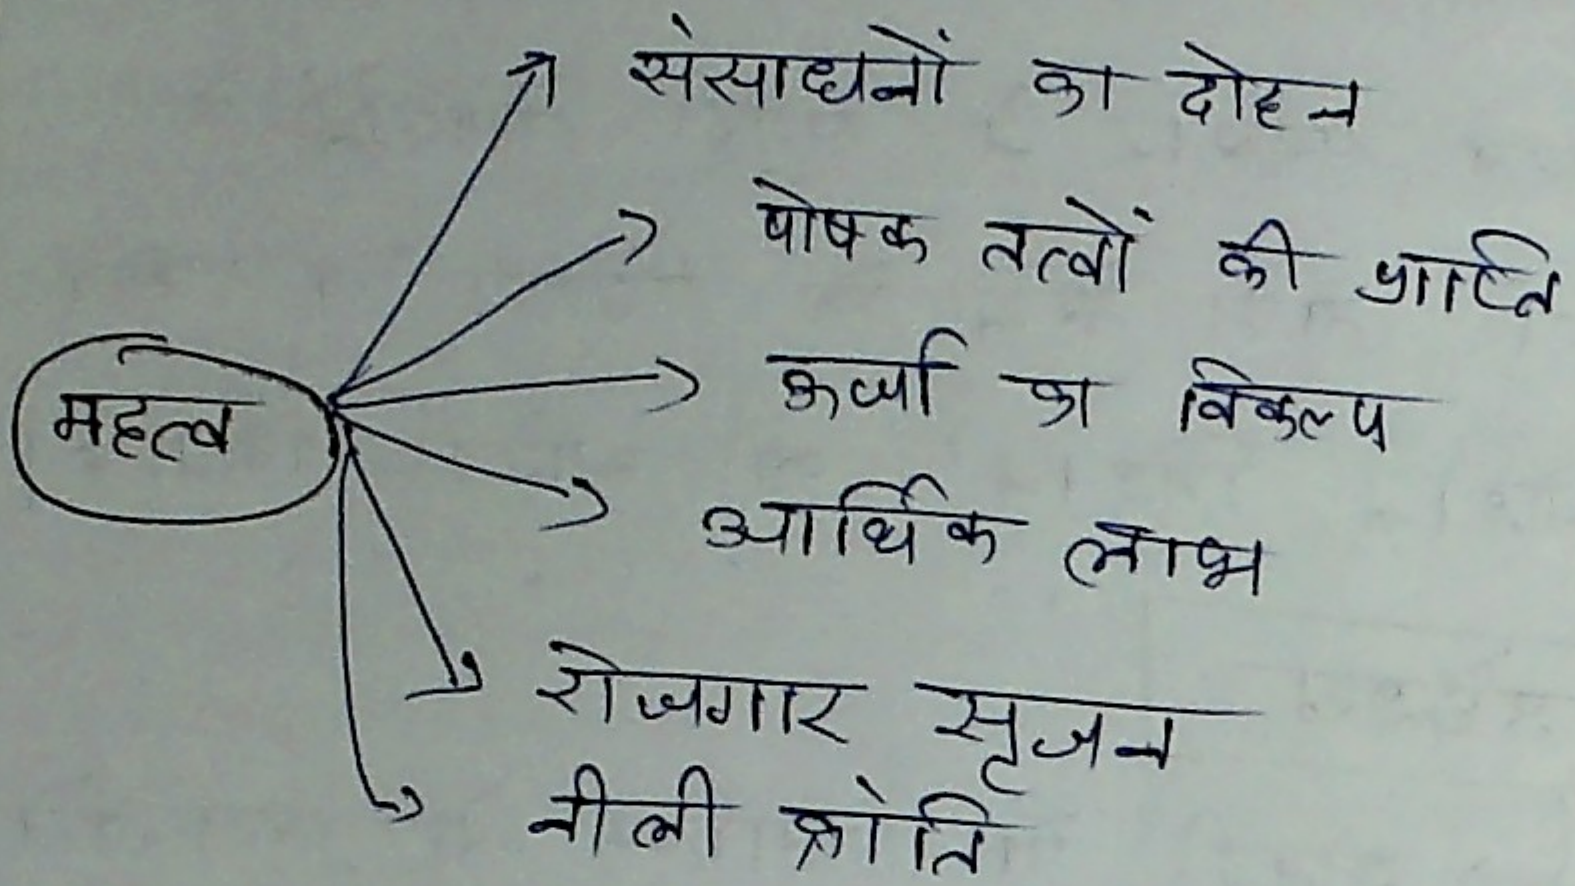 संसाधनों का दोहन
पोषक तत्वों की प्राप्ति
ऊर्जा का विकल्प
महत्व
आर्थिक लाभ
रोजगार सृजन
नीली क्रांति